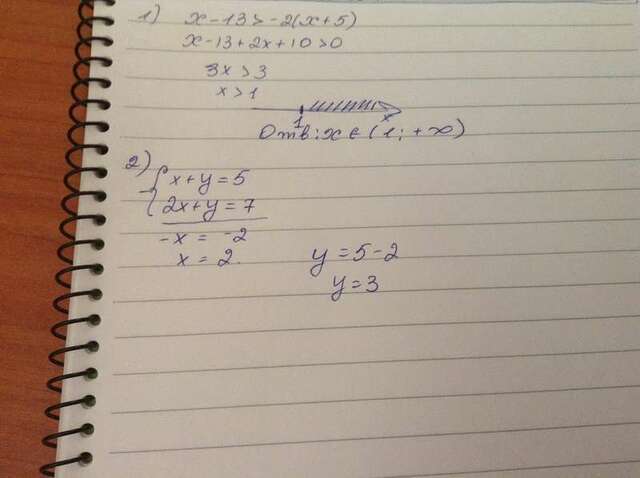 1) x - 13 > -2(x+5)
x - 13 + 2x + 10 > 0
3x > 3
x > 1
1 x
Отв: x ∈ (1; +∞)
2) { x + y = 5
2x + y = 7
-x = -2
x = 2.
y = 5 - 2
y = 3